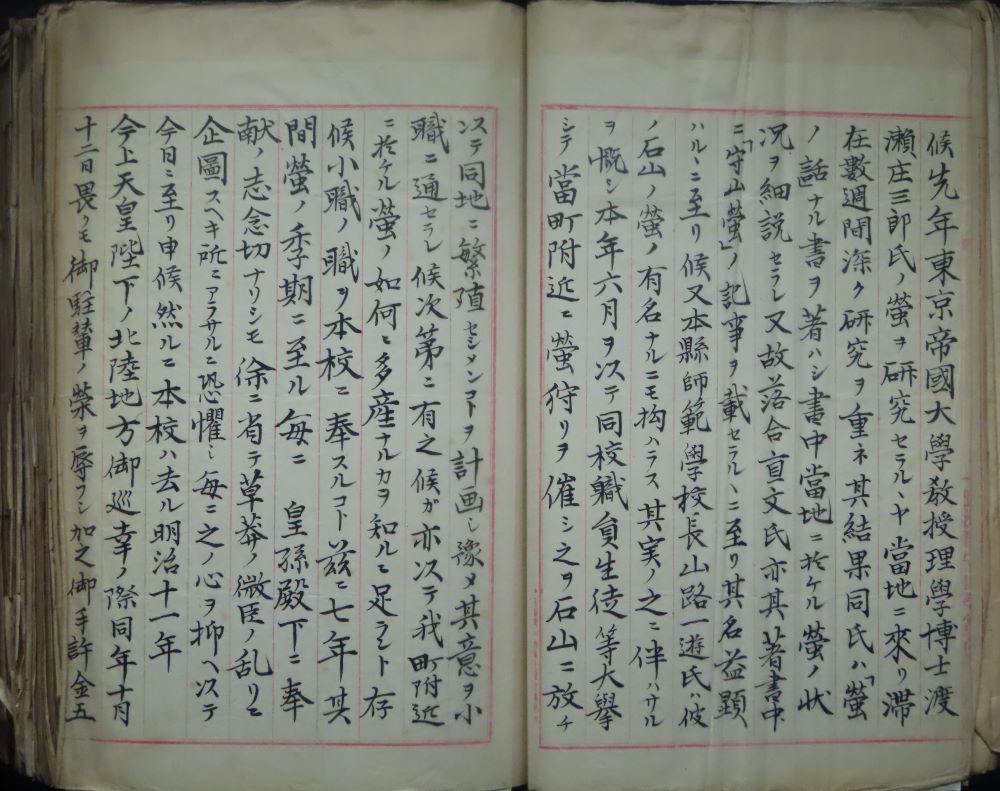 候先年東京帝國大學教授理學博士渡
瀬庄三郎氏ノ螢ヲ研究セラルヽヤ當地ニ來リ滞
在數週間深ク研究ヲ重ネ其結果同氏ハ「螢
ノ話」ナル書ヲ著ハシ書中當地ニ於ケル螢ノ状
況ヲ細説セラレ又故落合直文氏亦其著書中
ニ「守山螢」ノ記事ヲ載セラルヽニ至リ其名益顕
ハルヽニ至リ候又本縣師範學校長山路一遊氏ハ彼
ノ石山ノ螢ノ有名ナルニモ拘ハラス其実ノ之ニ伴ハサル
ヲ慨シ本年六月ヲ以テ同校職員生徒等大擧
シテ當町附近ニ螢狩リヲ催シ之ヲ石山ニ放チ
以テ同地ニ繁殖セシメンコトヲ計画シ豫メ其意ヲ小
職ニ通セラレ候次第ニ有之候カ亦以テ我町附近
ニ於ケル螢ノ如何ニ多産ナルカヲ知ルニ足ラント存
候小職ノ職ヲ本校ニ奉スルコト茲ニ七年其
間螢ノ季期ニ至ル毎ニ 皇孫殿下ニ奉
献ノ志念切ナリシモ徐ニ省テ草莽ノ微臣ノ乱リニ
企圖スヘキ所ニアラサルニ恐懼シ毎ニ之ノ心ヲ抑ヘ以テ
今日ニ至リ申候然ルニ本校ハ去ル明治十一年
今上天皇陛下ノ北陸地方御巡幸ノ際同年十月
十二日畏クモ御駐輦ノ榮ヲ辱フシ加之御手許金五